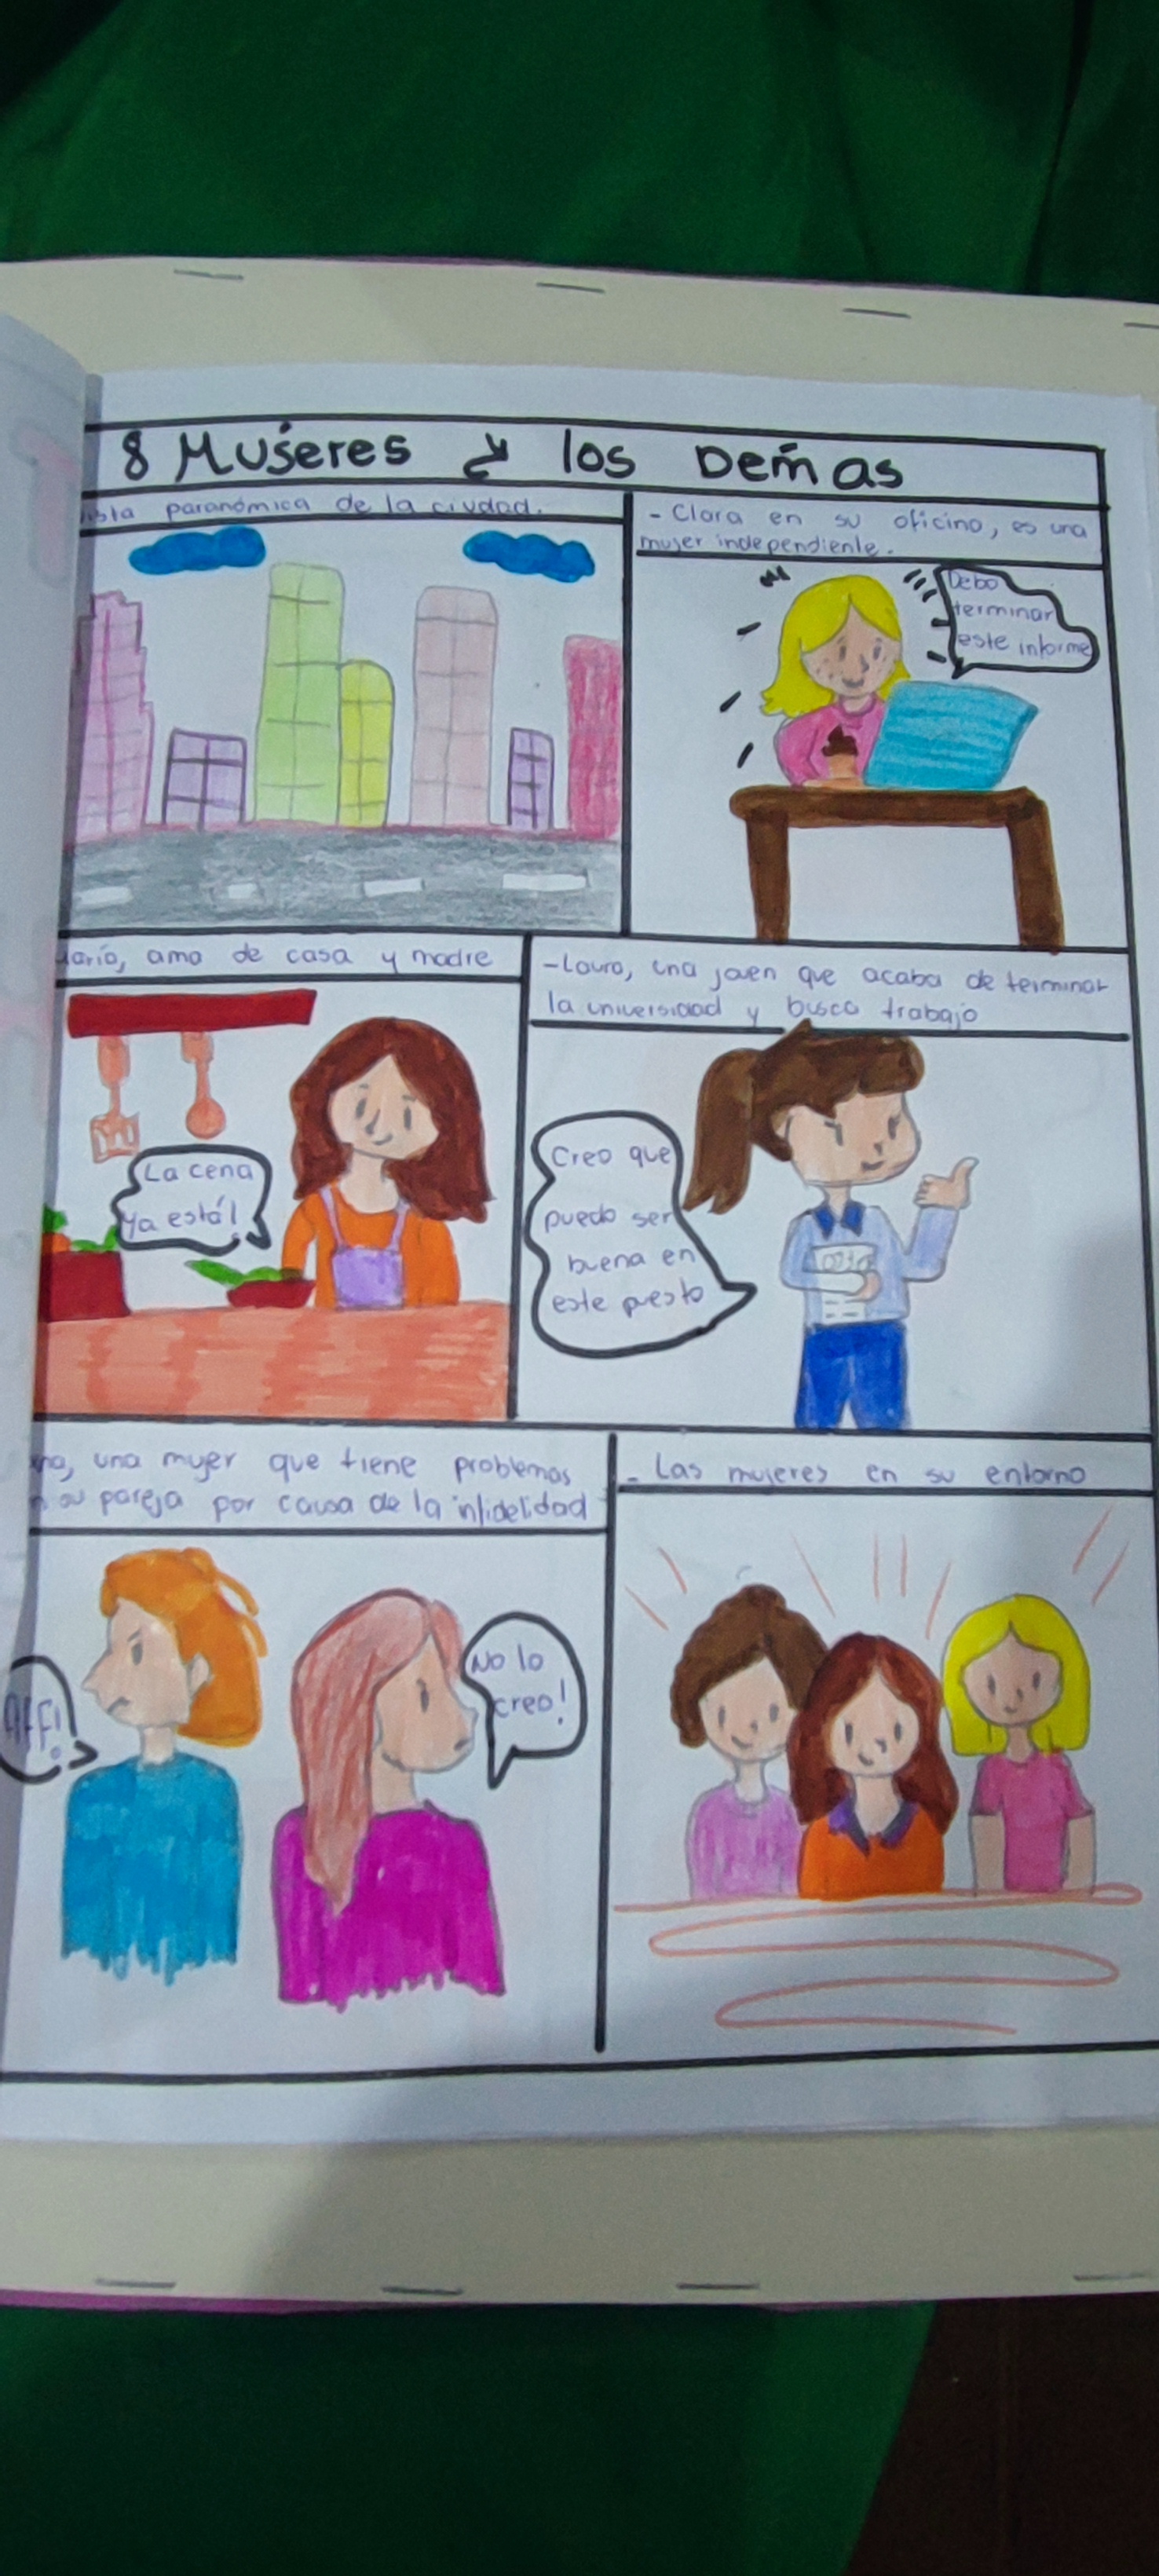 8 Mujeres y los Demás
paranómica de la ciudad.
- Clara en su oficina, es una
mujer independiente.
Debo
terminar
este informe
ama de casa y madre
La cena
ya está!
- Laura, una joven que acaba de terminar
la universidad y busca trabajo
Creo que
puedo ser
buena en
este puesto
una mujer que tiene problemas
su pareja por causa de la infidelidad
No lo
creo!
- Las mujeres en su entorno